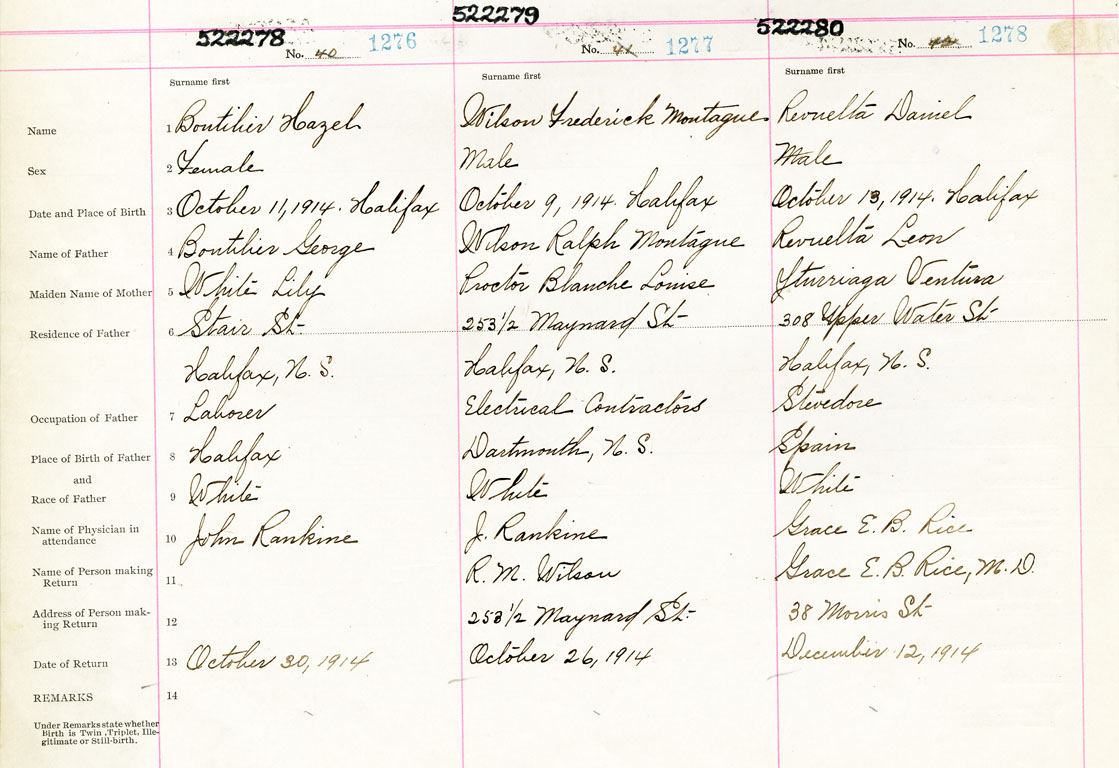 522278 522279 522280
No. 40 1276 No. 41 1277 No. 42 1278
Surname first Surname first Surname first
Name 1 Boutilier Hazel Wilson Frederick Montague Revuelta Daniel
Sex 2 Female Male Male
Date and Place of Birth 3 October 11, 1914. Halifax October 9, 1914. Halifax October 13, 1914. Halifax
Name of Father 4 Boutilier George Wilson Ralph Montague Revuelta Leon
Maiden Name of Mother 5 White Lily Proctor Blanche Louise Yturriaga Ventura
Residence of Father 6 Stair St. 253 1/2 Maynard St. 308 Upper Water St.
Halifax, N. S. Halifax, N. S. Halifax, N. S.
Occupation of Father 7 Laborer Electrical Contractors Stevedore
Place of Birth of Father 8 Halifax Dartmouth, N. S. Spain
and
Race of Father 9 White White White
Name of Physician in attendance 10 John Rankine J. Rankine Grace E. B. Rice
Name of Person making Return 11 R. M. Wilson Grace E. B. Rice, M. D.
Address of Person mak-ing Return 12 253 1/2 Maynard St. 38 Morris St
Date of Return 13 October 30, 1914 October 26, 1914 December 12, 1914
REMARKS 14
Under Remarks state whether
Birth is Twin, Triplet, Ille-
gitimate or Still-birth.